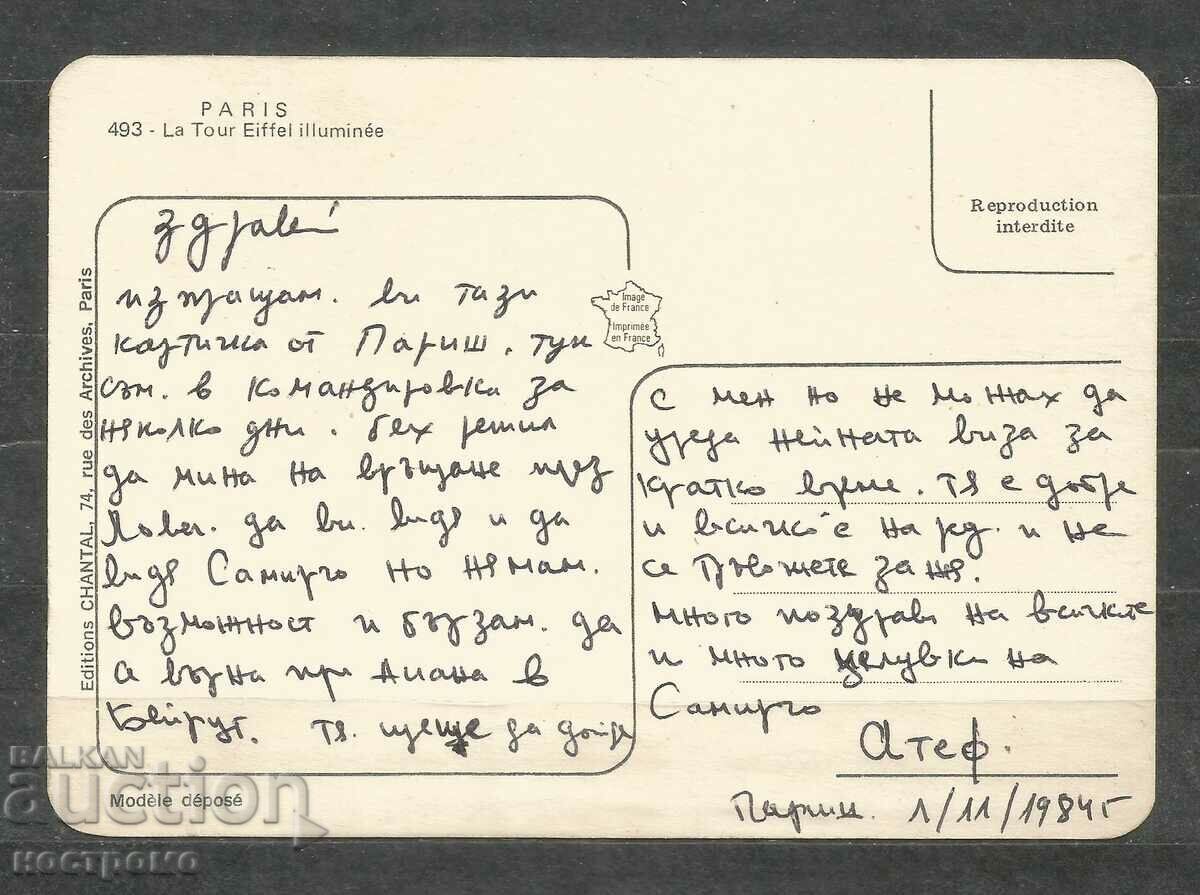 PARIS
493 - La Tour Eiffel illuminée
Reproduction
interdite
Editions CHANTAL, 74, rue des Archives, Paris
Image
de France
Imprimée
en France
здравей
изпращам. ви тази
картичка от Париш, тук
съм. в командировка за
няколко дни. бех решил
да мина на връщане през
Ловеч. да ви. видя и да
видя Самирчо но нямам.
възможност и бързам. да
се върна при Диана в
Бейрут. тя. щеше да дойде
с мен но не можах да
уреда нейната виза за
кратко време. тя е добре
и всичко е на ред. и не
се тревожете за ня.
много поздрави на всичките
и много целувки на
Самирчо
Атеф.
Париш. 1/11/1984г
Modèle déposé
BALKAN
auction
костромо